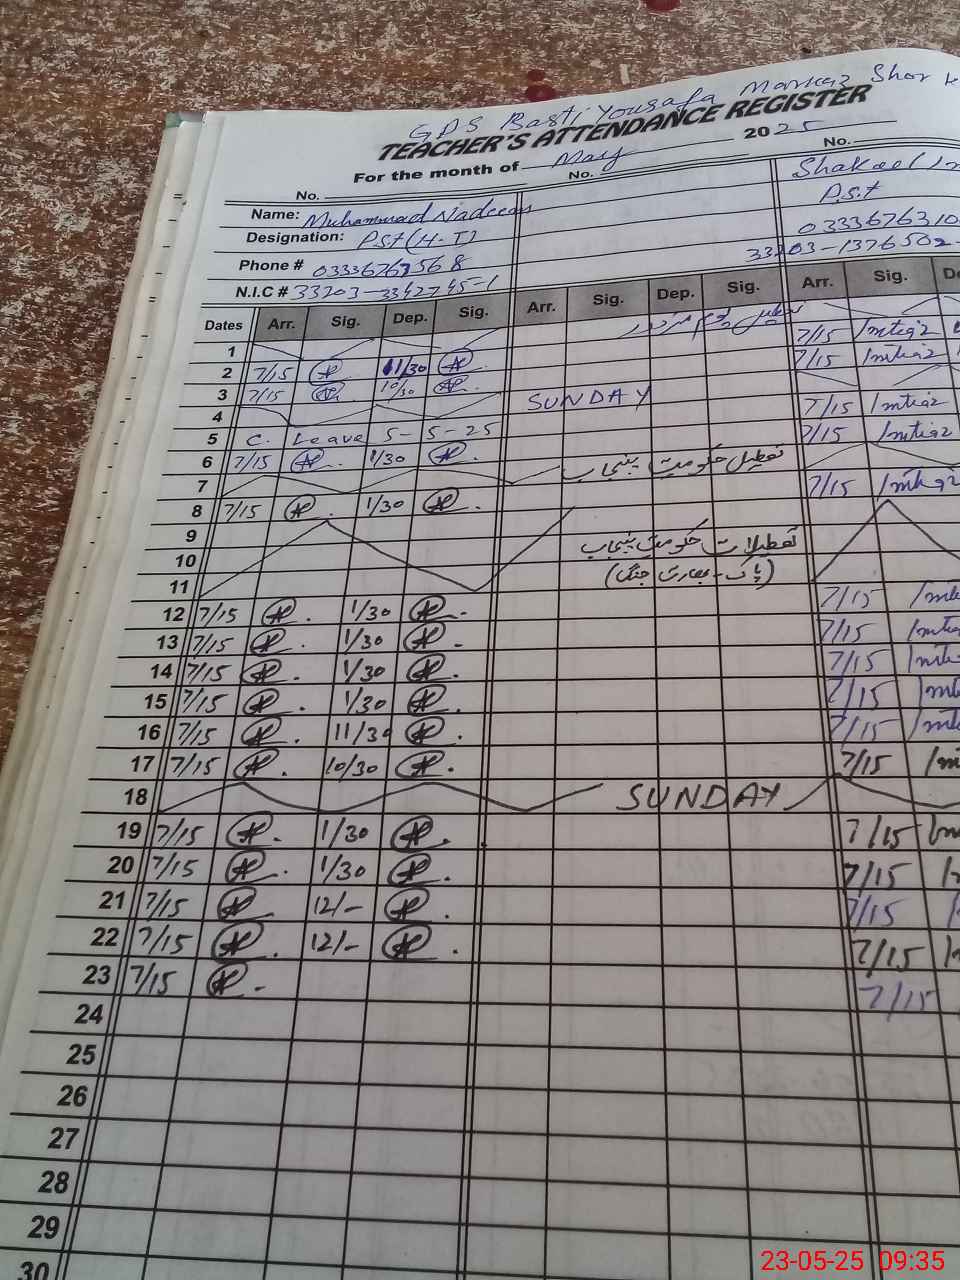 GPS Basti Yousafa Markaz Shor k
TEACHER'S ATTENDANCE REGISTER
For the month of May 2025
No. No. No.
Name: Muhammad Nadeem Shakeel Im
Designation: P.S.T (H.T) P.S.T
Phone # 03336763568 033367631
N.I.C # 33203-3342745-1 33203-1376502-
Dates Arr. Sig. Dep. Sig. Arr. Sig. Dep. Sig. Arr. Sig. De
1 تعطیل یوم مزدور
2 7/15 11/30 7/15 Imtiaz
3 7/15 10/30 7/15 Imtiaz
4 SUNDAY
5 C. Leave 5-5-25 7/15 Imtiaz
6 7/15 1/30 7/15 Imtiaz
7 تعطیل حکومت پنجاب
8 7/15 1/30 7/15 Imtiaz
9
10 تعطیلات حکومت پنجاب
11 (پاک - بھارت جنگ)
12 7/15 1/30 7/15 Imti
13 7/15 1/30 7/15 Imti
14 7/15 1/30 7/15 Imti
15 7/15 1/30 7/15 Imt
16 7/15 11/30 7/15 Imt
17 7/15 10/30 7/15 Im
18 SUNDAY
19 7/15 1/30 7/15 Im
20 7/15 1/30 7/15
21 7/15 12/- 7/15
22 7/15 12/- 7/15
23 7/15 7/15
24
25
26
27
28
29
30
23-05-25 09:35